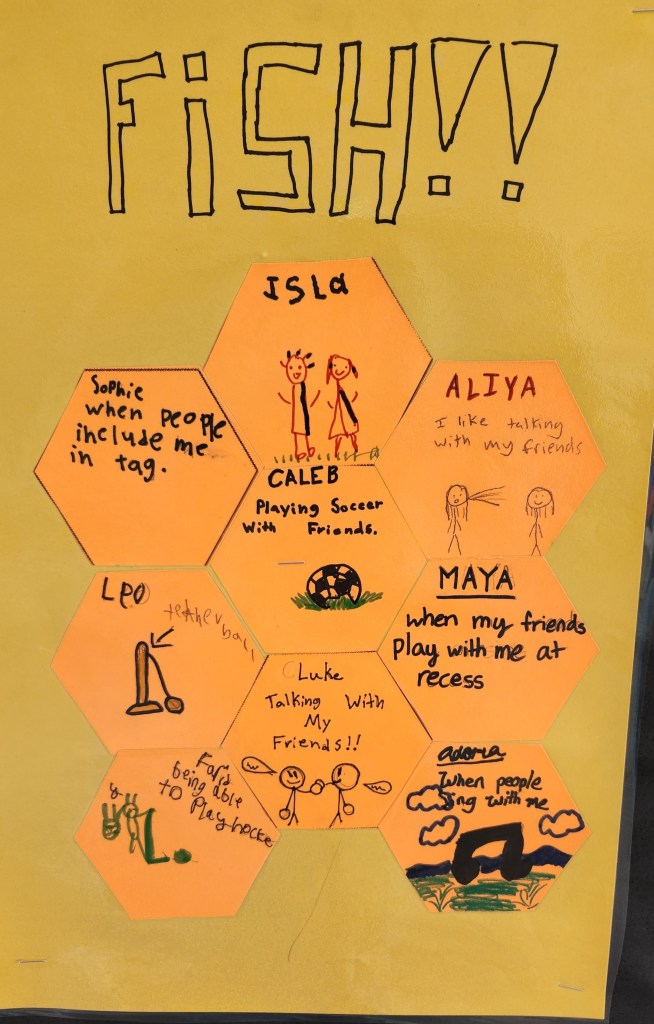 FiSH!!
ISLa
Sophie
when people
include me
in tag.
ALIYA
I like talking
with my friends
CALEB
Playing Soccer
With Friends.
Leo
tether
ball
MAYA
when my friends
play with me at
recess
Luke
Talking With
My
Friends!!
Farid
being able
to Play hocke
adoria
When people
Sing with me